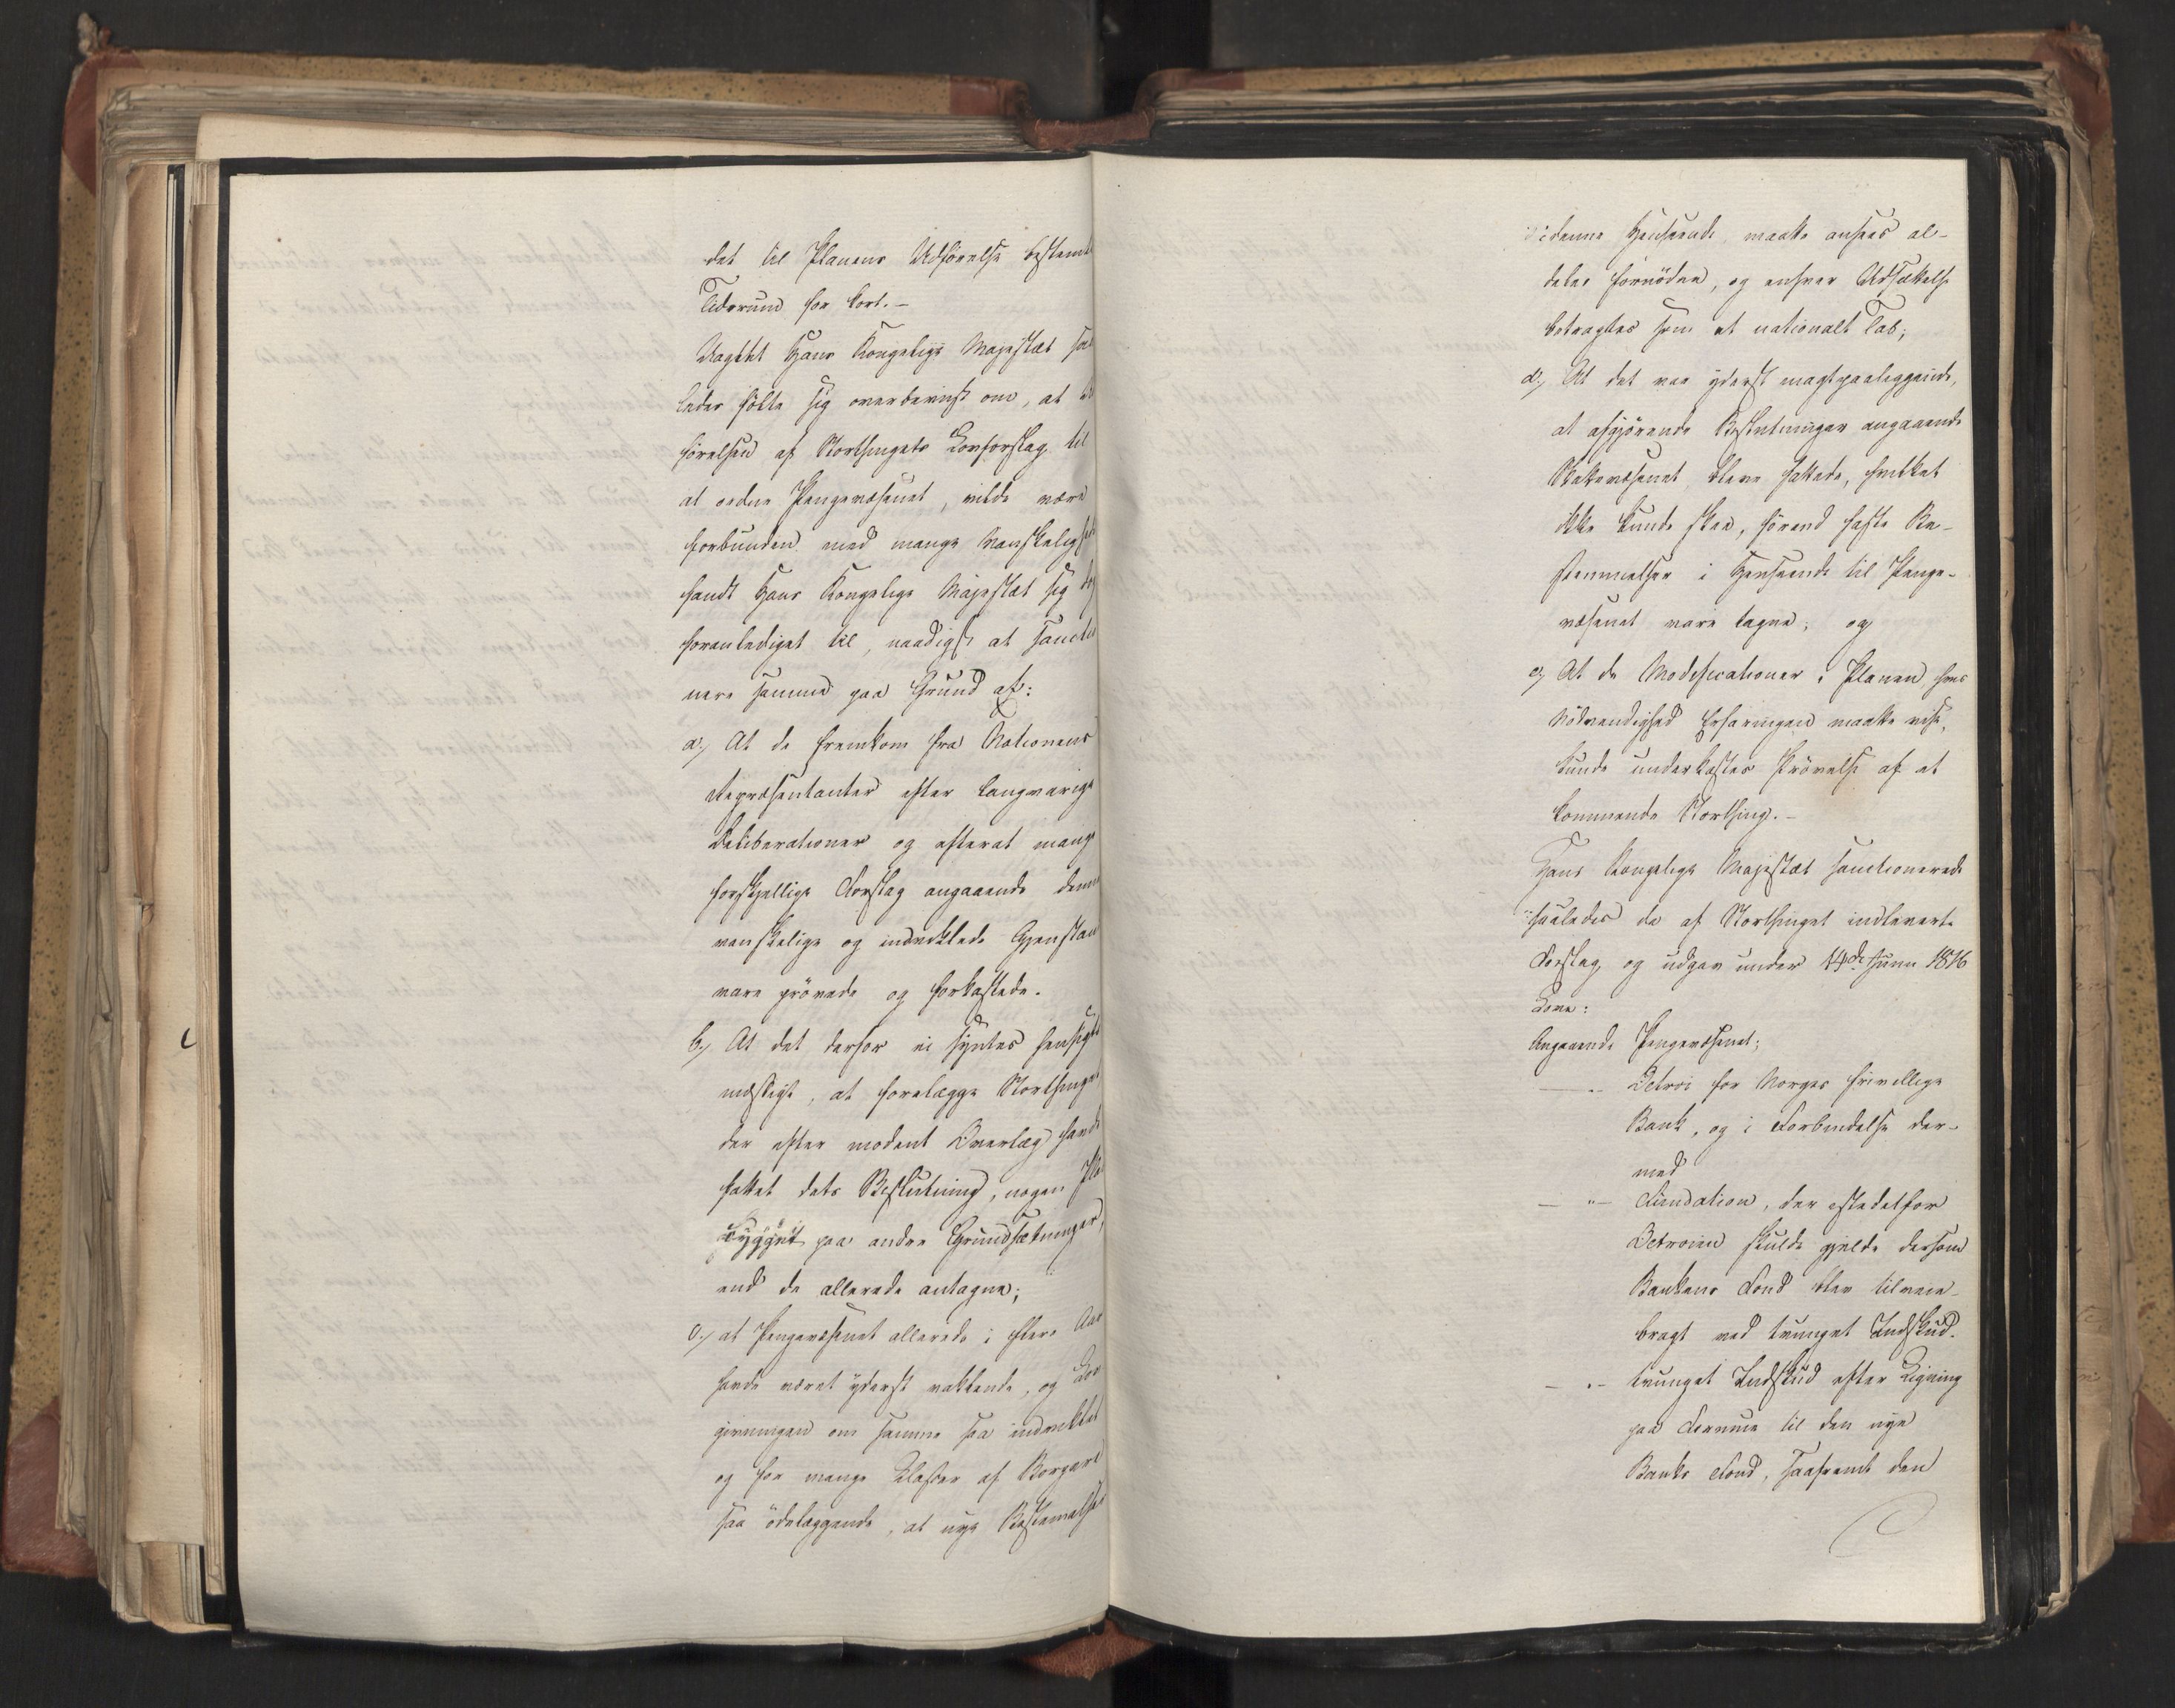 det til Planens Udførelse bestemte
Tidsrum for kort.-
Uagtet Hans Kongelige Majestæt saa
ledes følte sig overbeviist om, at Ud
førelsen af Storthingets Lovforslag til
at ordne Pengevæsenet, vilde være
forbunden med mange Vanskelighe
fandt Hans Kongelige Majestæt sig dog
foranlediget til, naadigst at sanctio
nere samme paa Grund af:
a./ At de fremkom fra Nationens
Repræsentanter efter langvarige
Deliberationer og efterat mange
forskjellige Forslag angaaende denne
vanskelige og indviklede Gjenstan
vare prøvede og forkastede.
b./ At det derfor ei syntes hensigts
mæssigt, at forelægge Storthinget
der efter modent Overlæg havde
fattet dets Beslutning, nogen Pla
bygget paa andre Grundsætninger,
end de allerede antagne;
c./ at Pengevæsenet allerede i flere Aar
havde været yderst vaklende, og Lov
givningen om samme saa indviklet
og for mange Klasser af Borgere
saa ødelæggende, at nye Bestemmelser
i denne Henseende maatte ansees al-
deles fornøden, og enhver Udsættelse
betragtes som et nationalt Tab;
d./ At det var yderst magtpaaliggende,
at afgjørende Beslutninger angaaende
Skattevæsenet bleve fattede, hvilket
ikke kunde skee, førend faste Be-
stemmelser i Henseende til Penge-
væsenet vare tagne; og
e./ At de Modificationer i Planen, hvis
Nødvendighed Erfaringen maatte vise,
kunde underkastes Prøvelse af et
kommende Storthing.-
Hans Kongelige Majestæt sanctionerede
saaledes de af Storthinget indleverte
Forslag og udgav under 14de Juni 1816
Love:
Angaaende Pengevæsenet;
— „ — Octroi for Norges frivillige
Bank, og i Forbindelse der-
med
— „ — Fundation, der istedetfor
Octroien skulde gjelde dersom
Bankens Fond blev tilveie-
bragt ved tvunget Indskud.
— „ — tvunget Indskud efter Ligning
paa Formue til den nye
Banks Fond, saafremt den